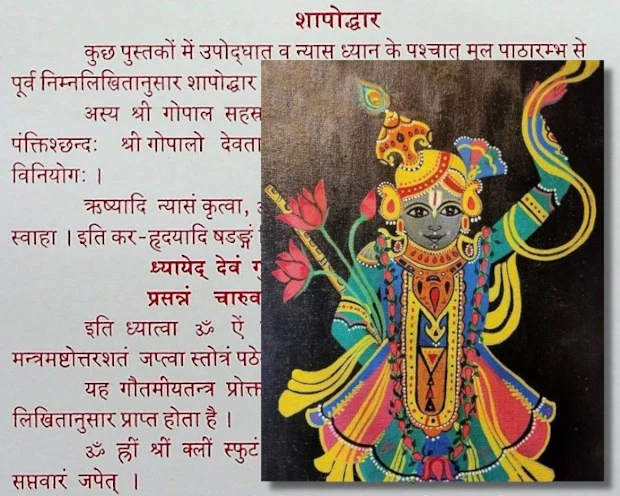 शापोद्धार
कुछ पुस्तकों में उपोद्घात व न्यास ध्यान के पश्चात् मूल पाठारम्भ से
पूर्व निम्नलिखितानुसार शापोद्धार
अस्य श्री गोपाल
पंक्तिश्छन्दः श्रीगोपालो
विनियोगः ।
ऋष्यादि न्यासं कृत्वा,
स्वाहा । इति कर-हृदयादि षडङ्गं
ध्यायेद् देवं
प्रसन्नं
इति ध्यात्वा ॐ ऐं
मन्त्रमष्टोत्तरशतं जप्त्वा स्तोत्रं
यह गौतमीयतन्त्र
लिखितानुसार प्राप्त होता है ।
ॐ ह्रीं श्रीं क्लीं स्फुटं
सप्तवारं जपेत् ।